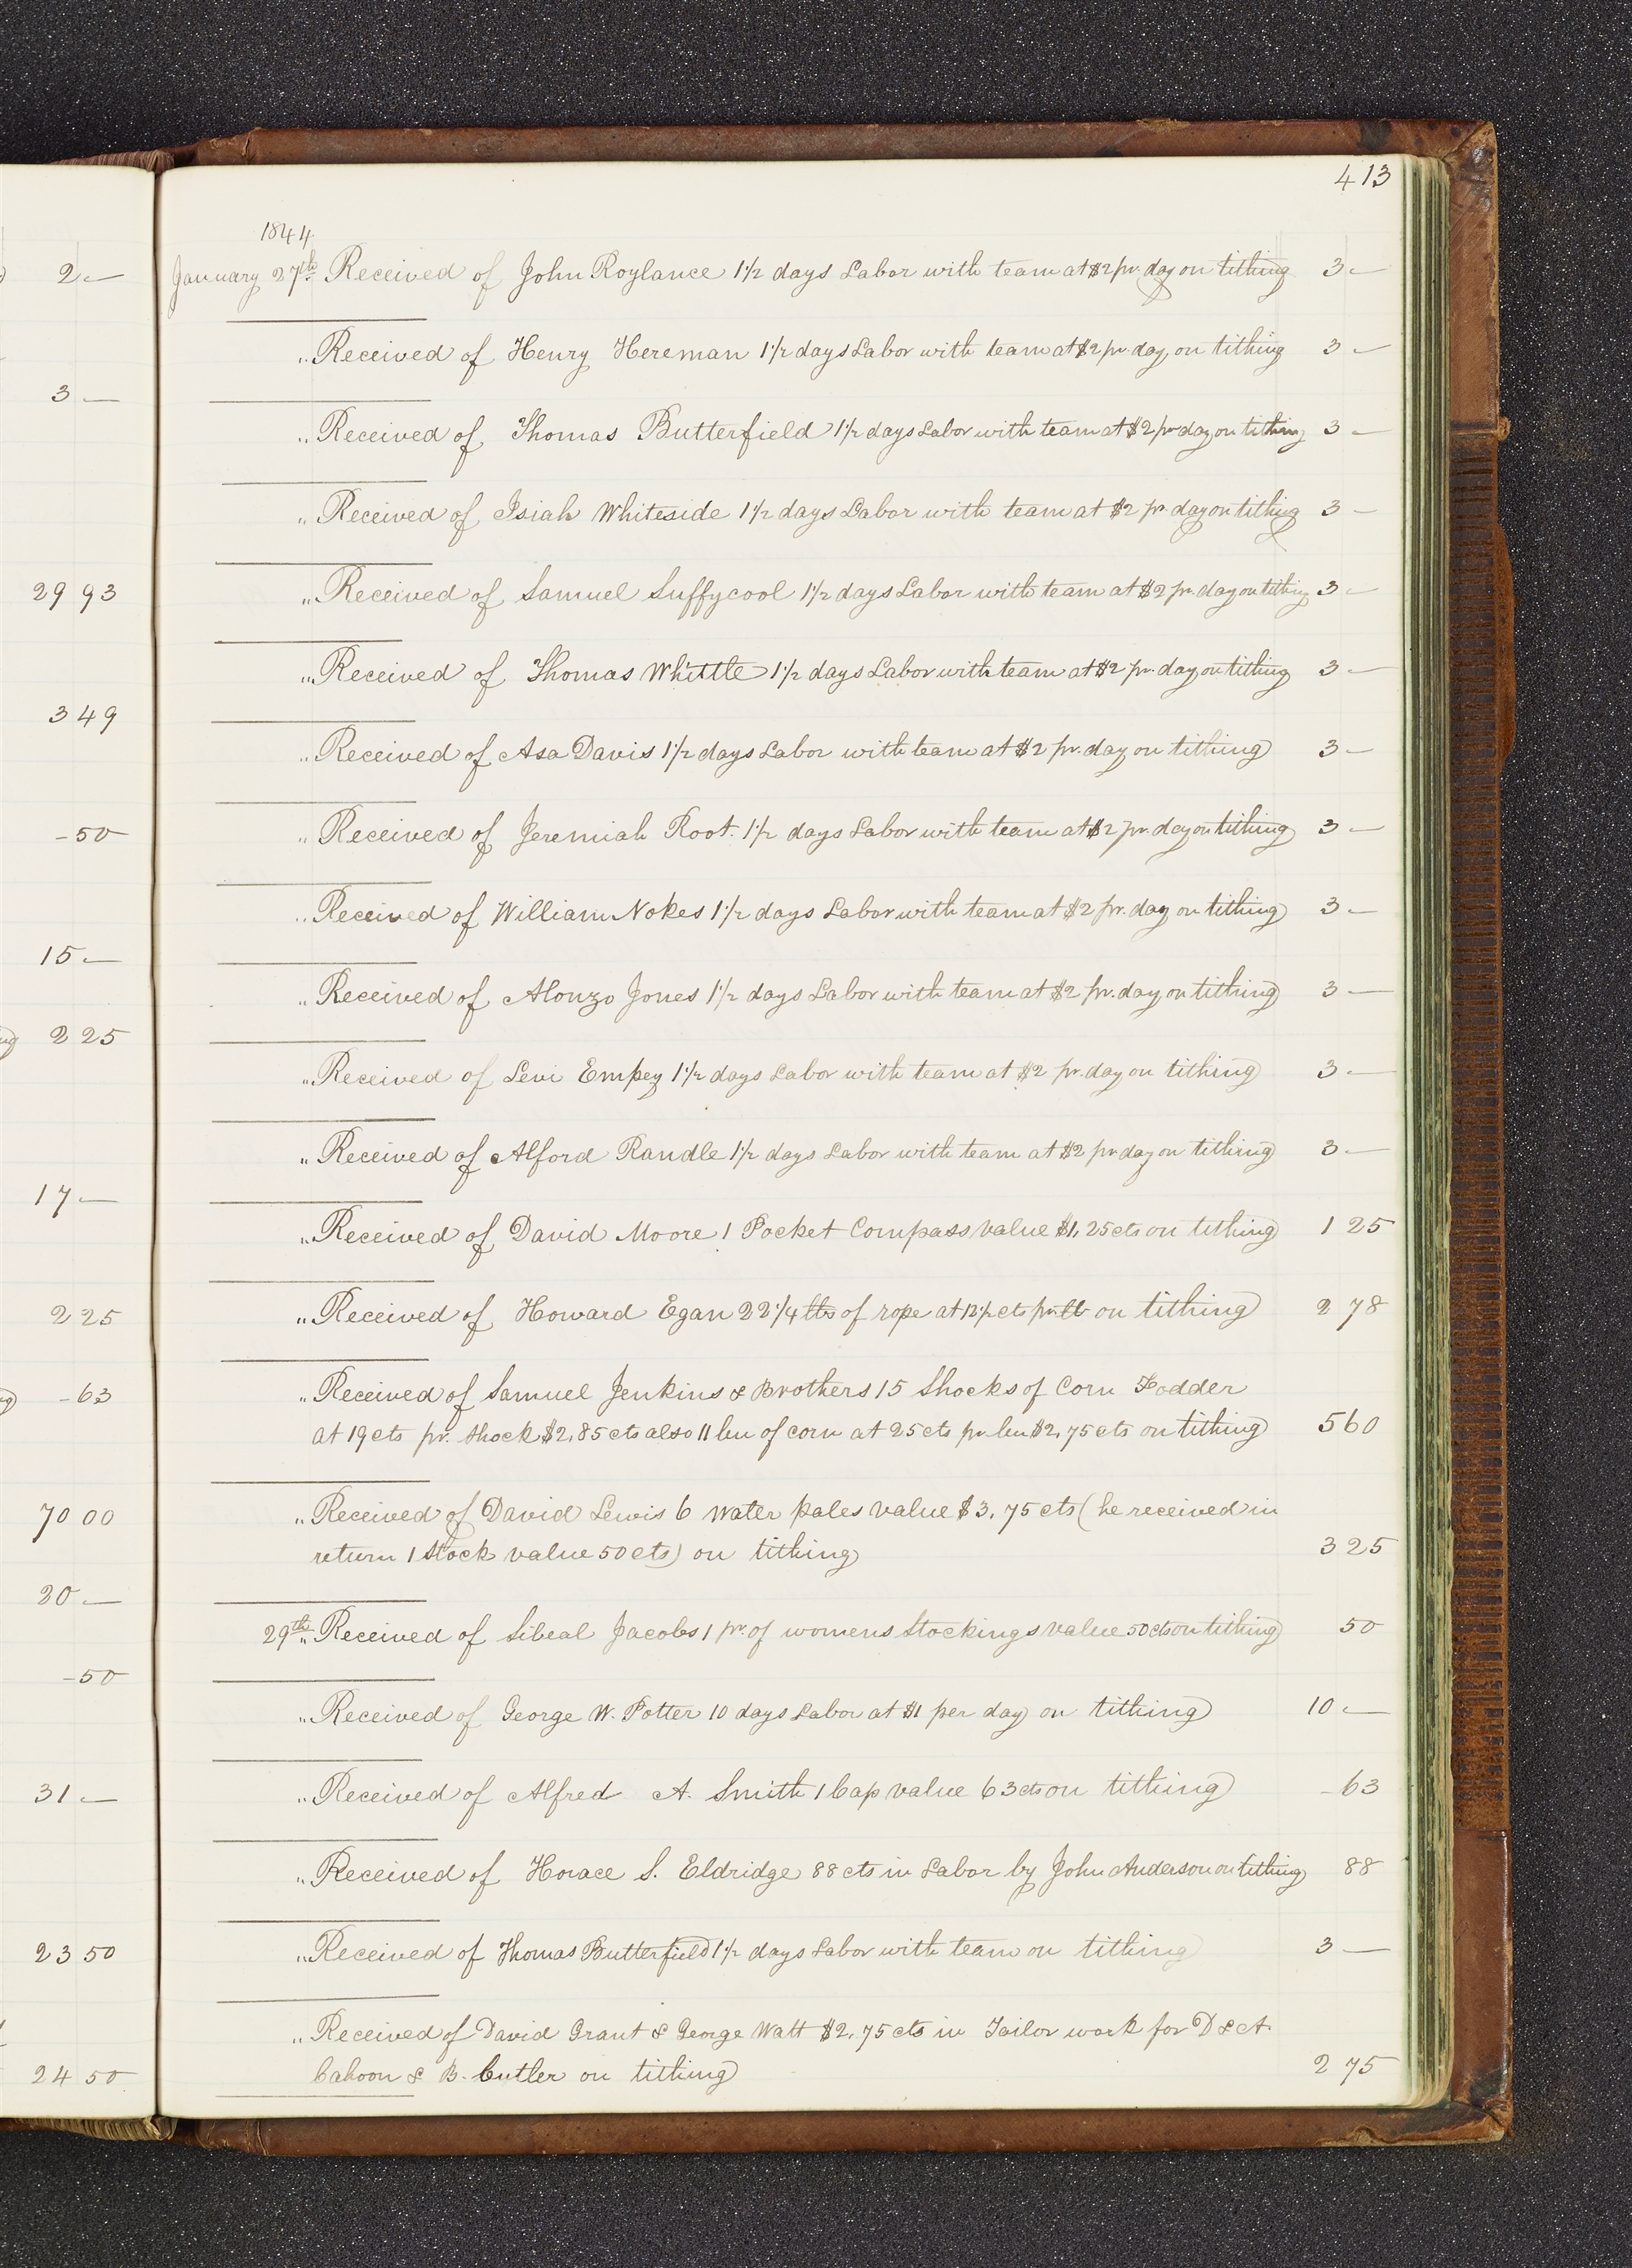 413
1844
2 — January 27th Received of John Roylance 1 1/2 days Labor with team at $2 pr. day on tithing 3 —
" Received of Henry Hereman 1 1/2 days Labor with team at $2 pr. day on tithing 3 —
3 —
" Received of Thomas Butterfield 1 1/2 days Labor with team at $2 pr day on tithing 3 —
" Received of Isiah Whiteside 1 1/2 days Labor with team at $2 pr day on tithing 3 —
29 93 " Received of Samuel Suffycool 1 1/2 days Labor with team at $2 pr. day on tithing 3 —
" Received of Thomas Whittle 1 1/2 days Labor with team at $2 pr. day on tithing 3 —
3 49
" Received of Asa Davis 1 1/2 days Labor with team at $2 pr. day on tithing 3 —
- 50 " Received of Jeremiah Root. 1 1/2 days Labor with team at $2 pr. day on tithing 3 —
" Received of William Nokes 1 1/2 days Labor with team at $2 pr. day on tithing 3 —
15 —
" Received of Alonzo Jones 1 1/2 days Labor with team at $2 pr. day on tithing 3 —
2 25
" Received of Levi Empey 1 1/2 days Labor with team at $2 pr. day on tithing 3 —
" Received of Alford Randle 1 1/2 days Labor with team at $2 pr day on tithing 3 —
17 —
" Received of David Moore 1 Pocket Compass value $1,25 cts on tithing 1 25
2 25 " Received of Howard Egan 22 1/4 lbs of rope at 12 1/2 cts pr lb on tithing 2 78
- 63 " Received of Samuel Jenkins & Brothers 15 Shocks of Corn Fodder
at 19 cts pr. shock $2,85 cts also 11 bu of corn at 25 cts pr bu $2,75 cts on tithing 5 60
70 00 " Received of David Lewis 6 water pales value $3,75 cts (he received in
return 1 Stock value 50 cts) on tithing 3 25
20 —
29th " Received of Sibeal Jacobs 1 pr. of womens Stockings value 50 cts on tithing 50
- 50
" Received of George W. Potter 10 days Labor at $1 per day on tithing 10 —
31 — " Received of Alfred A. Smith 1 Cap value 63 cts on tithing - 63
" Received of Horace S. Eldridge 88 cts in Labor by John Anderson on tithing 88
23 50 " Received of Thomas Butterfield 1 1/2 days Labor with team on tithing 3 —
" Received of David Grant & George Watt $2,75 cts in Tailor work for D & A.
24 50 Cahoon & B. Cutler on tithing 2 75